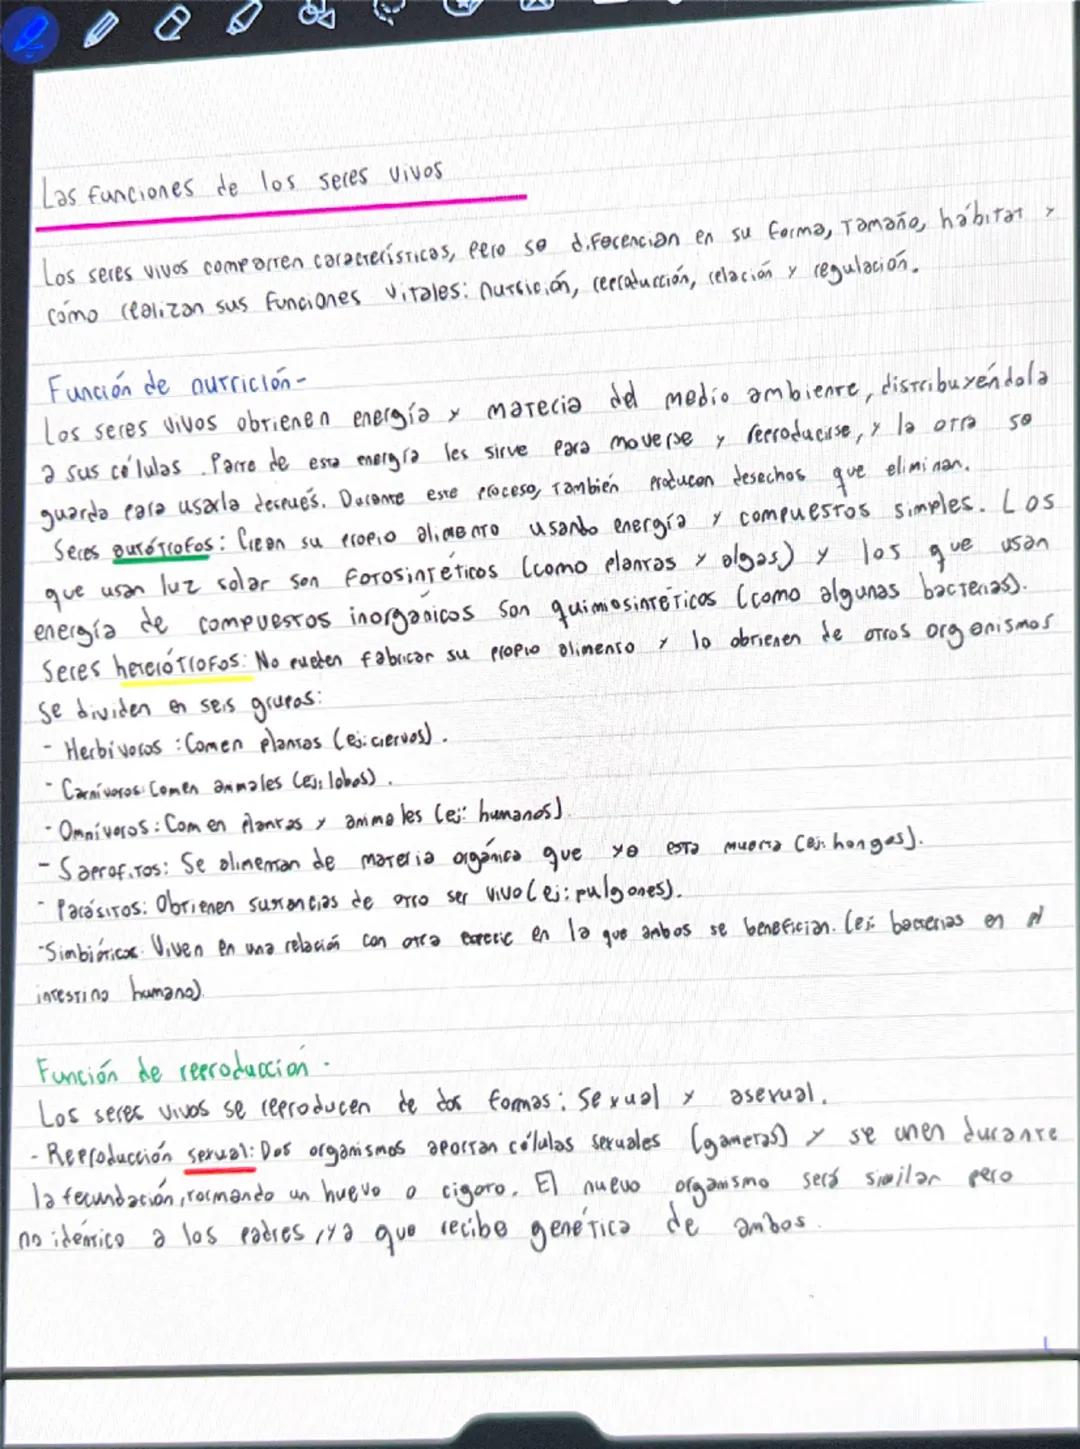 Las funciones de los seres vivos
Los seres vivos comparten características, pero se diferencian en su forma, tamaño, hábitat y
cómo realizan sus funciones vitales: nutrición, reproducción, relación y regulación.
Función de nutrición-
Los seres vivos obtienen energía y materia del medio ambiente, distribuyéndola
a sus células. Parte de esta energía les sirve para moverse y reproducirse, y la otra se
guarda para usarla después. Durante este proceso, también producen desechos que eliminan.
Seres autótrofos: Crean su propio alimento usando energía y compuestos simples. Los
que usan luz solar son fotosintéticos (como plantas y algas) y los que usan
energía de compuestos inorgánicos son quimiosintéticos (como algunas bacterias).
Seres heterótrofos: No pueden fabricar su propio alimento y lo obtienen de otros organismos
Se dividen en seis grupos:
- Herbívoros: Comen plantas (ej: ciervos).
- Carnívoros: Comen animales (ej: lobos).
- Omnívoros: Comen plantas y animales (ej: humanos).
- Saprofitos: Se alimentan de materia orgánica que ya está muerta (ej: hongos).
- Parásitos: Obtienen sustancias de otro ser vivo (ej: pulgones).
- Simbióticos: Viven en una relación con otra especie en la que ambos se benefician. (ej: bacterias en el
intestino humano).
Función de reproducción-
Los seres vivos se reproducen de dos formas: Sexual y asexual.
- Reproducción sexual: Dos organismos aportan células sexuales (gametas) y se unen durante
la fecundación, formando un huevo o cigoto. El nuevo organismo será similar pero
no idéntico a los padres, ya que recibe genética de ambos.